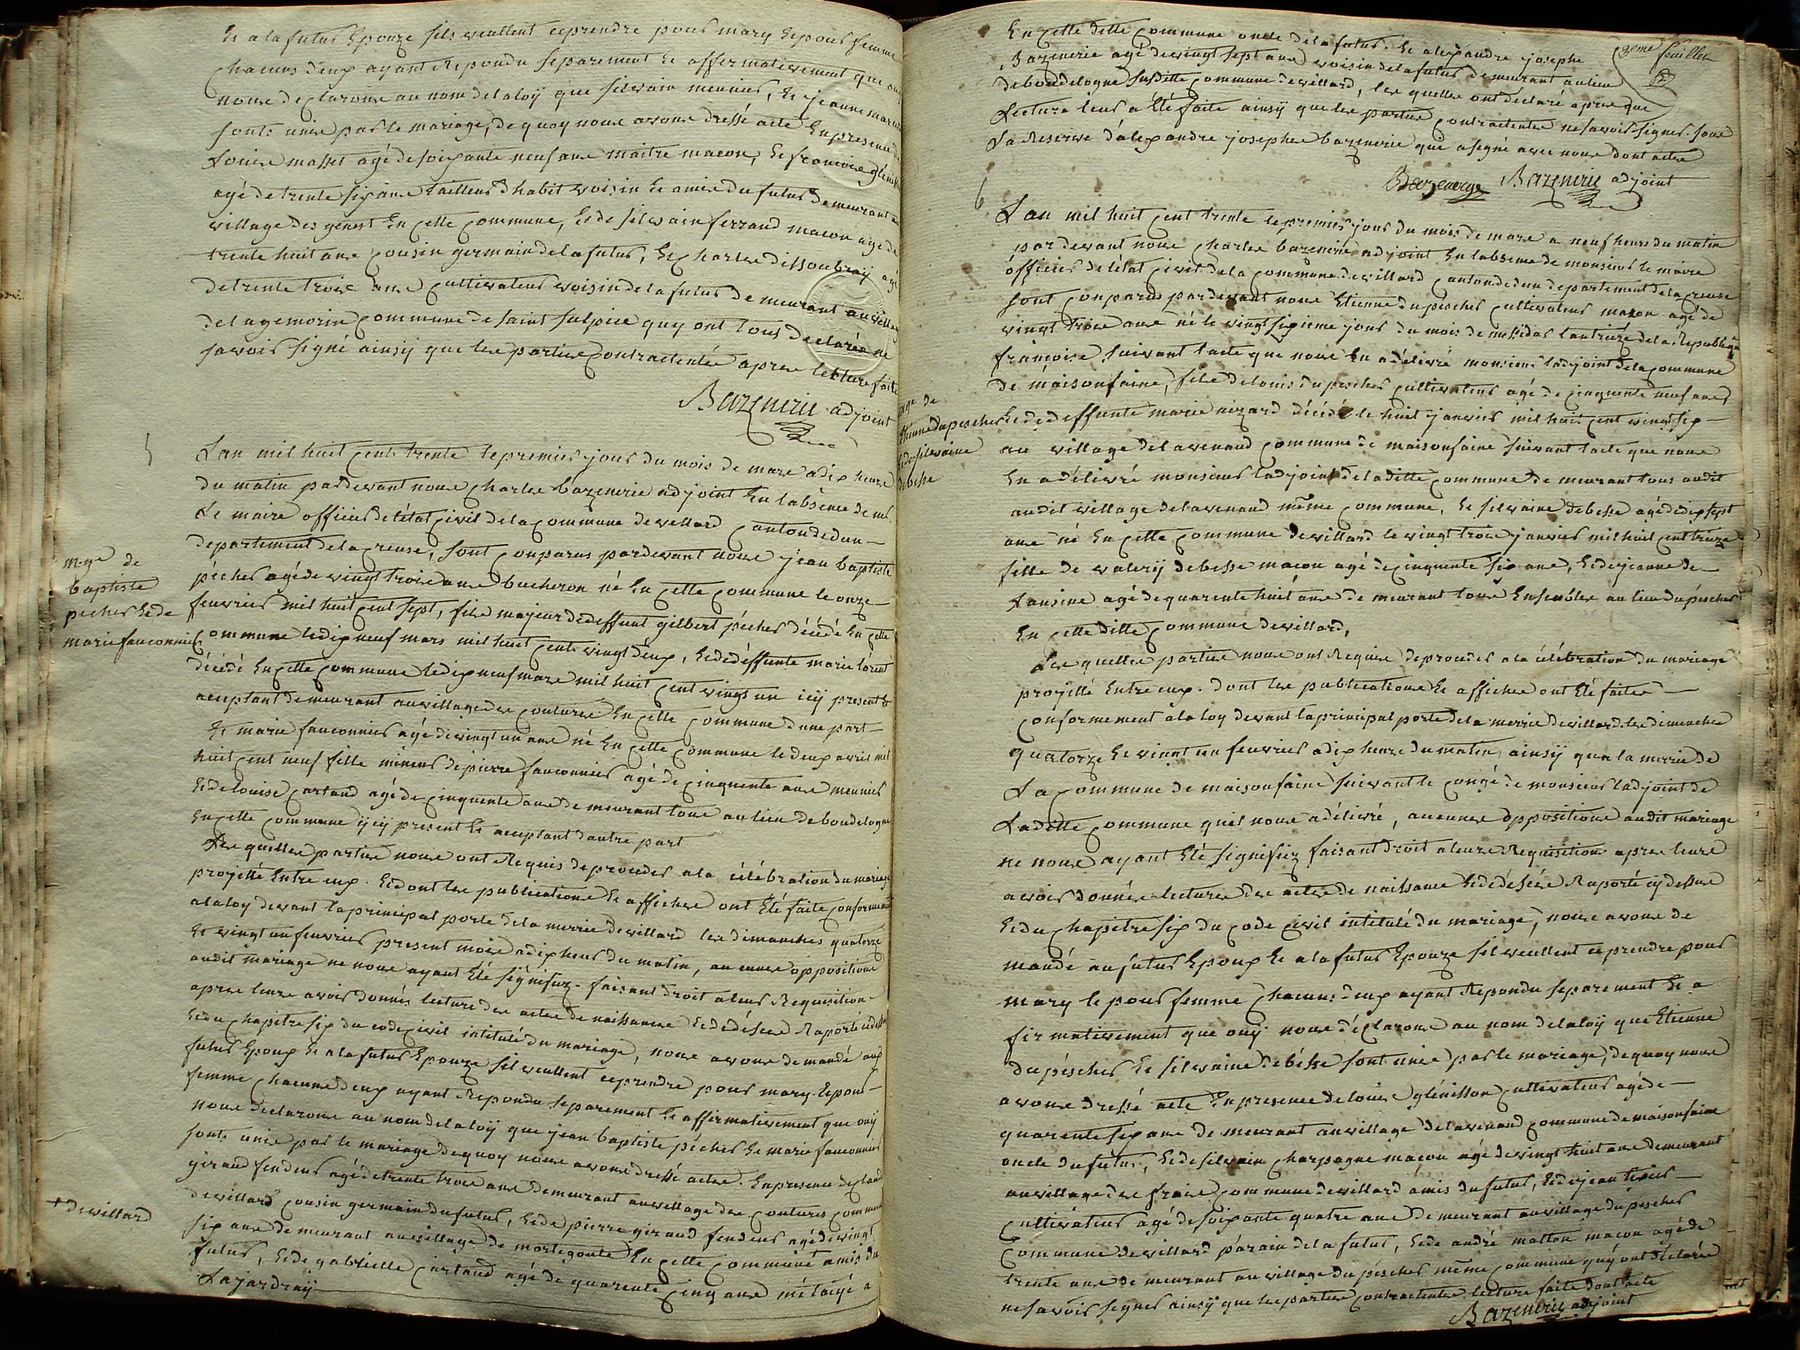 Et a la futur Epouze sils veullent ceprendre pour mary Et pour femme
Chacuns deux ayant Repondu separement Et affermativement que ouy
nous declarons au nom de la loÿ que silvain meunier, Et jeanne
sonts unis par le mariage, de quoy nous avons dressé acte En presence de
Louis masset agé de soixante neuf ans maitre macon, Et francois
agé de trente six ans tailleur dhabit voisin Et amis du futur demeurant au
village des genest En cette Commune, Et de silvain ferrand macon agé de
trente huit ans Cousin germain de la futur, Et Charles dissoubray agé
de trente trois ans Cultivateur voisin de la futur demeurant au village
de lagemorin Commune de saint sulpice quy ont tous declarés ne
savoir signé ainsÿ que les parties Contractentés apres lecture faite
Bazenerie adjoint
5
Lan mil huit Cent trente le premier jour du mois de mars a dix heure
du matin par devant nous Charles bazenerie adjoint En labsence de mr.
Le maire officier de létat Civil de la Commune de villard Canton de dun
departement de la creuse, sont Conparus par devant nous jean baptiste
pécher agé de vingt trois ans bucheron né En cette Commune le onze
fevrier mil huit Cent sept, fils majeur de deffunt gilbert pécher décédé En cette
Commune le dix neuf mars mil huit Cent vingt deux, Et de déffunte marie
décédé En cette Commune le dix neuf mars mil huit Cent vingt un icÿ present Et
aceptant demeurant au village des coutures En cette Commune dune part
mge de
baptiste
pecher Et de
marie fauconnier
Et marie fauconnier agé de vingt un ans né En cette Commune le deux avril mil
huit Cent neuf fille mineur de pierre fauconnier agé de Cinquente ans meunier
Et de louise Cartaud agé de Cinquente ans demeurant tous au lieu de boudelogne
En cette Commune ÿcÿ present Et aceptant dautre part
Les quelles parties nous ont Requis de proceder a la célébration du mariage
projetté Entre eux. Et dont les publications Et affiches ont Eté faite Conformement
a la loy devant la principal porte de la merrie de villard les dimanches quatorze
Et vingt un fevrier present mois a dix heur du matin, aucunes oppositions
audit mariage ne nous ayant Eté signifiez. faisant droit a leur Requisition
apres leurs avoir donnés lecture des actes de naissance Et de déscés Raporté
Et du Chapitre six du code Civil intitulé du mariage, nous avons demandé aux
futur Epoux Et a la futur Epouze sils veullent ceprendre pour mary Et pour
femme Chacuns deux ayant Repondu separement Et affirmativement que ouÿ
nous declarons au nom de la loÿ que jean baptiste pécher Et marie fauconnier
sonts unis par le mariage de quoy nous avons dressé actes. En presence de
giraud fendeur agé de trente trois ans demeurant au village des Coutures Commune
+ de villard
de villard Cousin germain du futur, Et de pierre giraud fendeur agé de vingt
six ans demeurant au village de mortegoute En cette Commune amis du
futur, Et de gabrielle Cartaud agé de quarente Cinq ans métaÿé a
Lajardraÿ
3eme feuillet
En Cette ditte Commune oncle de la futur. Et alexandre josephe
Bazenerie agé de vingt sept ans voisin de la futur demeurant au lieu
de boudelogne susditte Commune de villard, les quelles ont déclaré apres que
Lecture leur a Eté faite ainsÿ que les parties Contractentes ne savoir signer. sous
La Reserve dalexandre josephe bazenerie que a signé avec nous dont acte
Bazenerye Bazenerie adjoint
6
Lan mil huit Cent trente le premier jour du mois de mars a neuf heur du matin
par devant nous Charles bazenerie adjoint En labsence de monsieur le maire
officier de létat Civil de la Commune de villard Canton de dun departement de la creuse
sont Conparus par devant nous Etienne dupescher Cultivateur macon agé de
vingt trois ans né le vingt sixieme jour du mois de messidor lan treize de la Republiq
francoise, suivant lacte que nous En a délivré monsieur ladjoint de la Commune
de maisonfaine, fils de louis dupescher Cultivateur agé de Cinquente neuf ans
Et de deffunte marie nizard décédé le huit janvier mil huit Cent vingt six
mge de
Etienne dupescher
Et de silvaine
debesse
au village de lavenaud Commune de maisonfaine suivant lacte que nous
En a délivré monsieur ladjoint de la ditte Commune demeurant tous audit
audit village de lavenaud même Commune, Et silvaine debesse agé de dix sept
ans né En cette Commune de villard le vingt trois janvier mil huit Cent treize
fille de valerÿ debesse macon agé de Cinquente six ans, Et de jeanne de
Lansine agé de quarente huit ans demeurant tous Ensembles au lieu du pescher
En Cette ditte Commune de villard,
Les quelles parties nous ont Requise de proceder a la célébration du mariage
projetté Entre eux. dont les publications Et affiches ont Eté faites
Conformement à la loy devant la principal porte de la merrie de villard les dimenches
quatorze Et vingt un fevrier a dix heure du matin, ainsÿ qua la merrie de
La Commune de maisonfaine suivant le Congé de monsieur ladjoint de
Laditte Commune quil nous a délivré, aucunes oppositions audit mariage
ne nous ayant Eté signifiez faisant droit a leurs Requisitions apres leurs
avoir donnés lectures des actes de naissance Et de déscés Raporté cÿ dessus
Et du Chapitre six du Code Civil intitulé du mariage, nous avons de
mandé au futur Epoux Et a la futur Epouze sil veullent ceprendre pour
mary Et pour femme Chacuns deux ayant Repondu separement Et a
firmativement que ouÿ nous déclarons au nom de la loÿ que Etienne
du péscher Et silvaine debésse sont unis par le mariage, de quoy nous
avons dressé acte En presence de louis glénisson Cultivateur agé de
quarente six ans demeurant au village de lavenaud Commune de maisonfaine
oncle du futur, Et de silvain Charpagne macon agé de vingt huit ans demeurant
au village des frais Commune de villard amis du futur, Et de jean
Cultivateur agé de soixante quatre ans demeurant au village du péscher
Commune de villard parain de la futur, Et de andré matton macon agé de
trente ans demeurant au village du péscher même Commune quÿ ont déclarés
ne savoir signer ainsÿ que les parties Contractentes lecture faite dont acte
Bazenerie adjoint